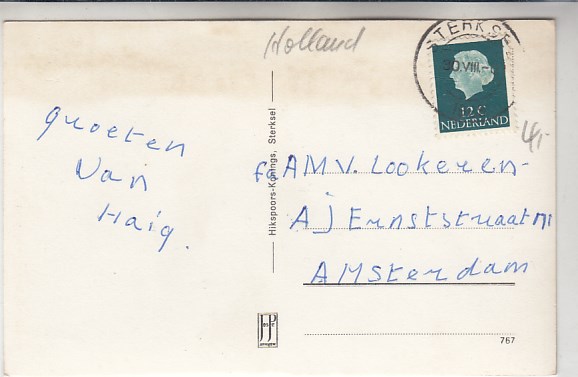 Holland
STERKSEL
30 VIII.
12 C
NEDERLAND
4,-
groeten
Van
Haig.
Hikspoors-Konings, Sterksel
AMV. Lookeren-
A J Ernststraat
AMsterdam
JosPé
767